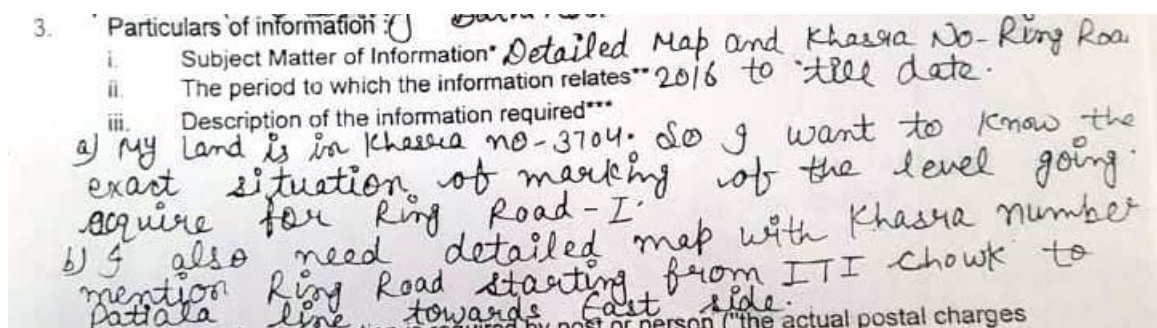 3. Particulars of information :
i. Subject Matter of Information* Detailed Map and Khasra No- Ring Roa
ii. The period to which the information relates** 2016 to till date.
iii. Description of the information required***
a) My Land is in Khasra no-3704. So I want to know the
exact situation of marking of the level going
acquire for Ring Road-I.
b) I also need detailed map with Khasra number
mention Ring Road starting from ITI Chowk to
Patiala line towards East side.
by post or person ("the actual postal charges